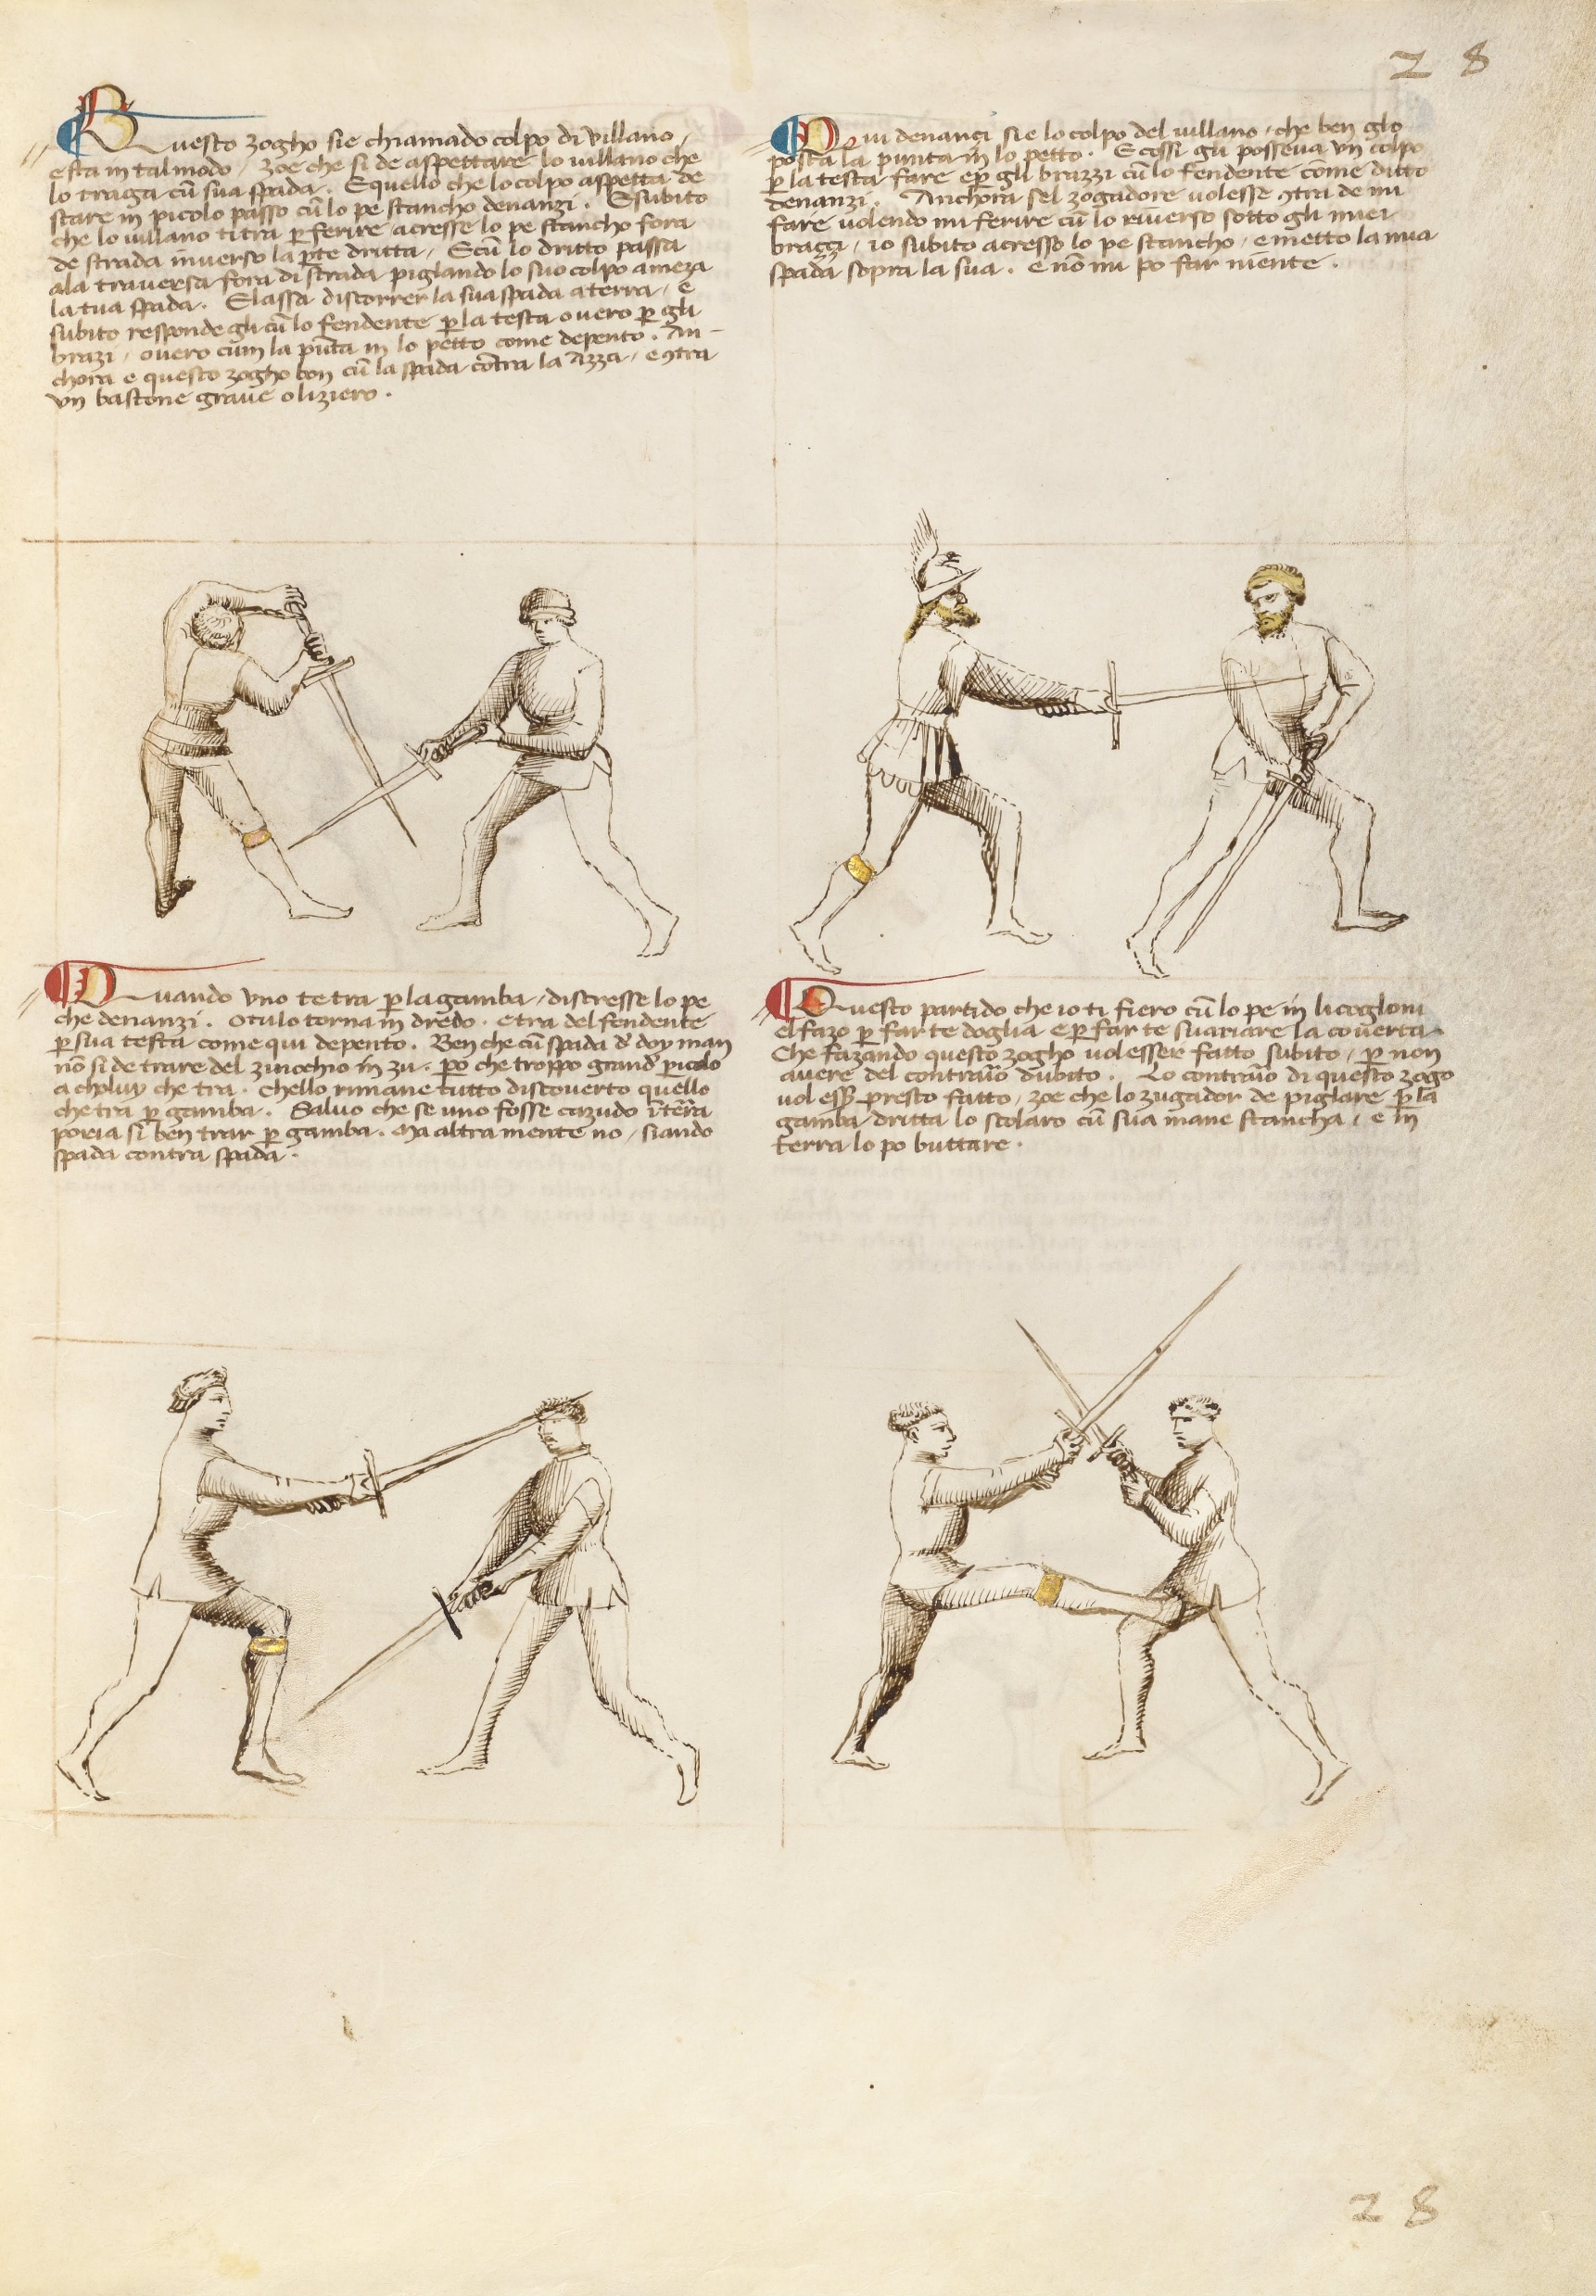 28
Questo zogho sie chiamado colpo di villano,
e sta in tal modo, zoe che si de aspettare lo villano che
lo traga cū sua spada. E quello che lo colpo aspetta de
stare in picolo passo cū lo pe stancho denanzi. E subito
che lo villano ti tra p ferire acresse lo pe stancho fora
de strada inverso la pte dritta, E cū lo dritto passa
ala traversa fora di strada piglando lo suo colpo a meza
la tua spada. E lassa discorrer la sua spada a terra, e
subito responde gli cū lo fendente p la testa overo p gli
brazi, overo cum la pūta in lo petto come depento. An-
chora e questo zogho bon cū la spada cōtra la azza, e 9tra
un bastone grave o liziero.
Qui denançi sie lo colpo del villano, che ben glo
posta la punta in lo petto. E cossi gli posseva un colpo
p la testa fare e p gli brazzi cū lo fendente come ditto
denanzi. Anchora sel zogadore volesse 9tra de mi
fare volendo mi ferire cū lo riverso sotto gli miei
braççi, io subito acresso lo pe stancho, e metto la mia
spada sopra la sua. e nō mi po far niente.
Quando uno te tra p la gamba, discresse lo pe
che denanzi. o tu lo torna in dredo. e tra del fendente
p sua testa come qui depento. Ben che cū spada d doy man
nō si de trare del zinochio in zu. po che troppo grand picolo
a choluy che tra. Chello rimane tutto discoverto quello
che tra p gamba. Salvo che se uno fosse cazudo ī terra
poria si ben trar p gamba. Ma altra mente no, siando
spada contra spada.
Questo partido che io ti fiero cū lo pe in li coglioni
el fazo p farte doglia e p farte svariare la coverta.
Che fazando questo zogho vol esser fatto subito, p non
avere del contrario dubito. Lo contrario di questo zogo
vol ess presto fatto, zoe che lo zugador de piglare p la
gamba dritta lo scolaro cū sua mane stancha, e in
terra lo po buttare.
28